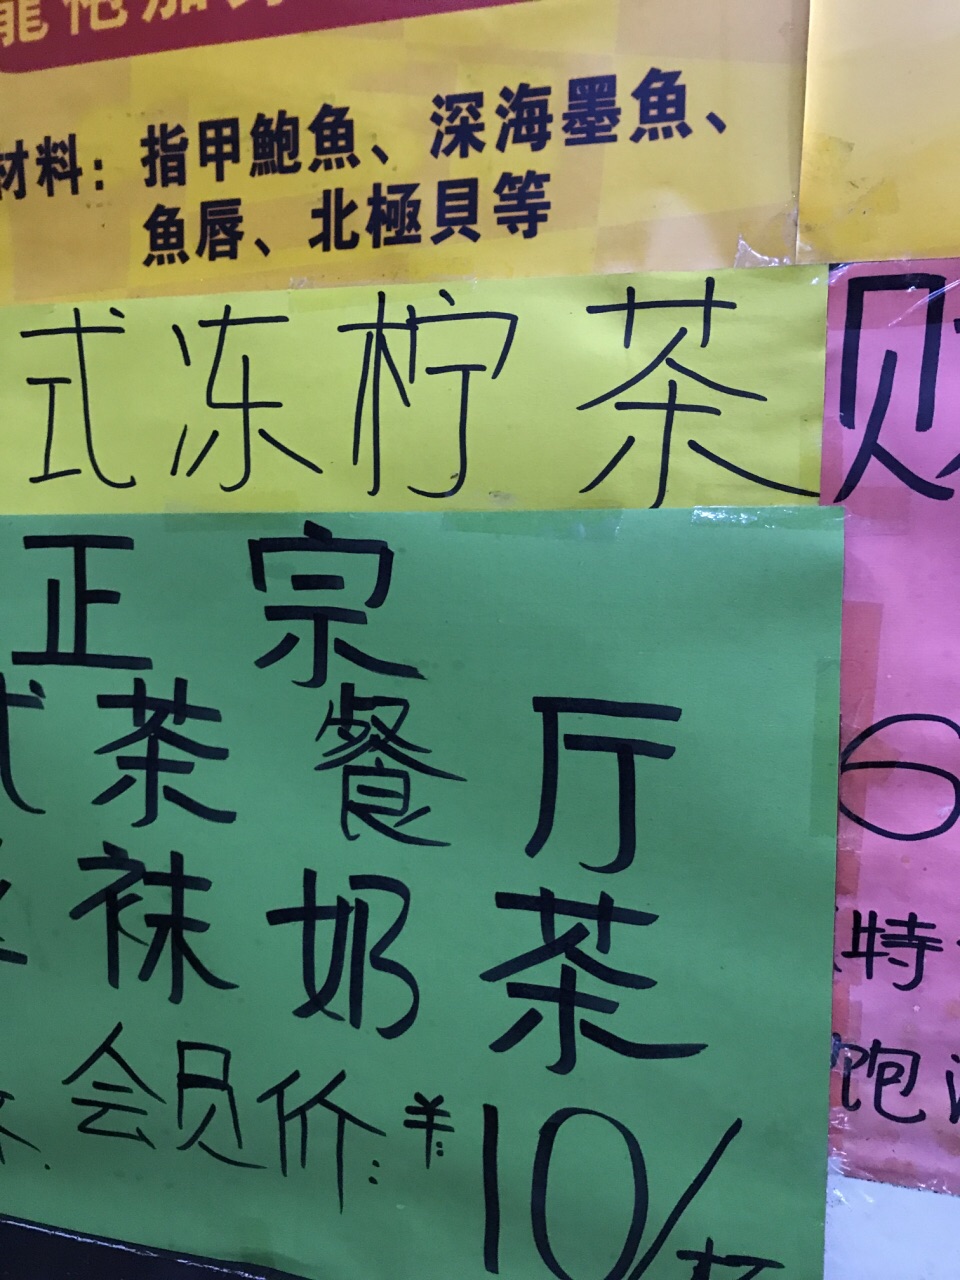 材料：指甲鮑魚、深海墨魚、
魚唇、北極貝等
式冻柠茶
正宗
式茶餐厅
袜奶茶
会员价:¥:10/杯
6
特
饱